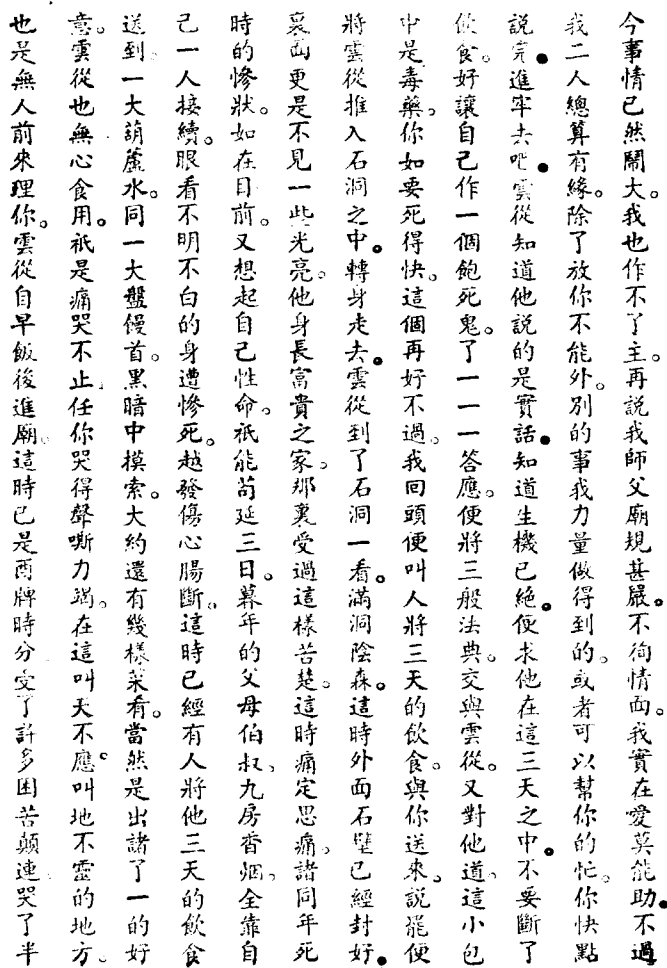 今事情已然鬧大。我也作不了主。再說我師父廟規甚嚴。不徇情面。我實在愛莫能助。不過
我二人總算有緣。除了放你不能外。別的事我力量做得到的。或者可以幫你的忙。你快點
說完。進牢去吧。雲從知道他說的是實話。知道生機已絕。便求他在這三天之中。不要斷了
飲食。好讓自己作一個飽死鬼。了一一一答應。便將三般法典。交與雲從。又對他道。這小包
中是毒藥。你如要死得快。這個再好不過。我回頭便叫人將三天的飲食。與你送來。說罷便
將雲從推入石洞之中。轉身走去。雲從到了石洞一看。滿洞陰森。這時外面石壁已經封好。
裏面更是不見一些光亮。他身長富貴之家。那裏受過這樣苦楚。這時痛定思痛。諸同年死
時的慘狀。如在目前。又想起自己性命。祇能苟延三日。暮年的父母伯叔、九房香烟。全靠自
己一人接續。眼看不明不白的身遭慘死。越發傷心腸斷。這時已經有人將他三天的飲食
送到。一大葫蘆水。同一大盤饅首。黑暗中摸索。大約還有幾樣菜肴。當然是出諸了一的好
意。雲從也無心食用。祇是痛哭不止。任你哭得聲嘶力竭。在這叫天不應。叫地不靈的地方。
也是無人前來理你。雲從自早飯後進廟。這時已是酉牌時分。受了許多困苦顛連。哭了半